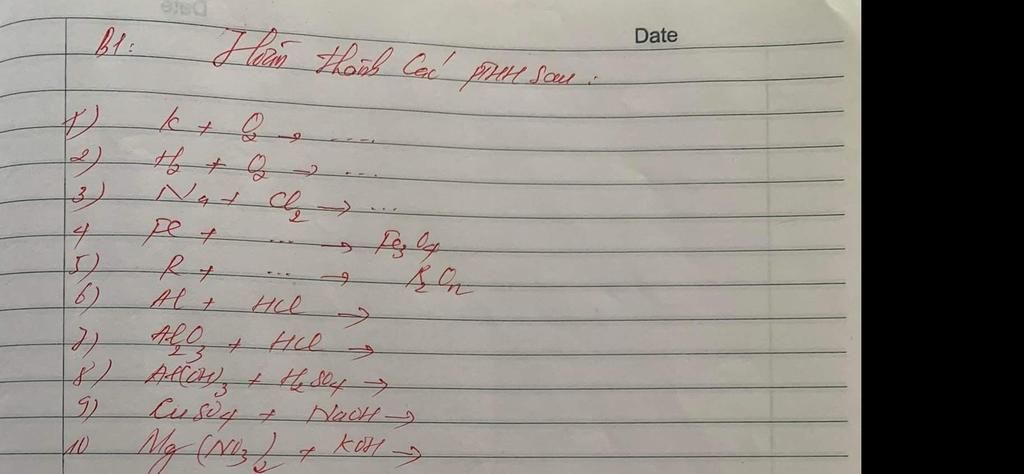 Date
B1: Hoàn thành các PTHH sau:
1) K + O₂ → ....
2) H₂ + O₂ → ...
3) Na + Cl₂ → ...
4 Fe + ... → Fe₃O₄
5) R + ... → R₂Oₙ
6) Al + HCl →
7) Al₂O₃ + HCl →
8) Al(OH)₃ + H₂SO₄ →
9) CuSO₄ + NaOH →
10 Mg(NO₃)₂ + KOH →